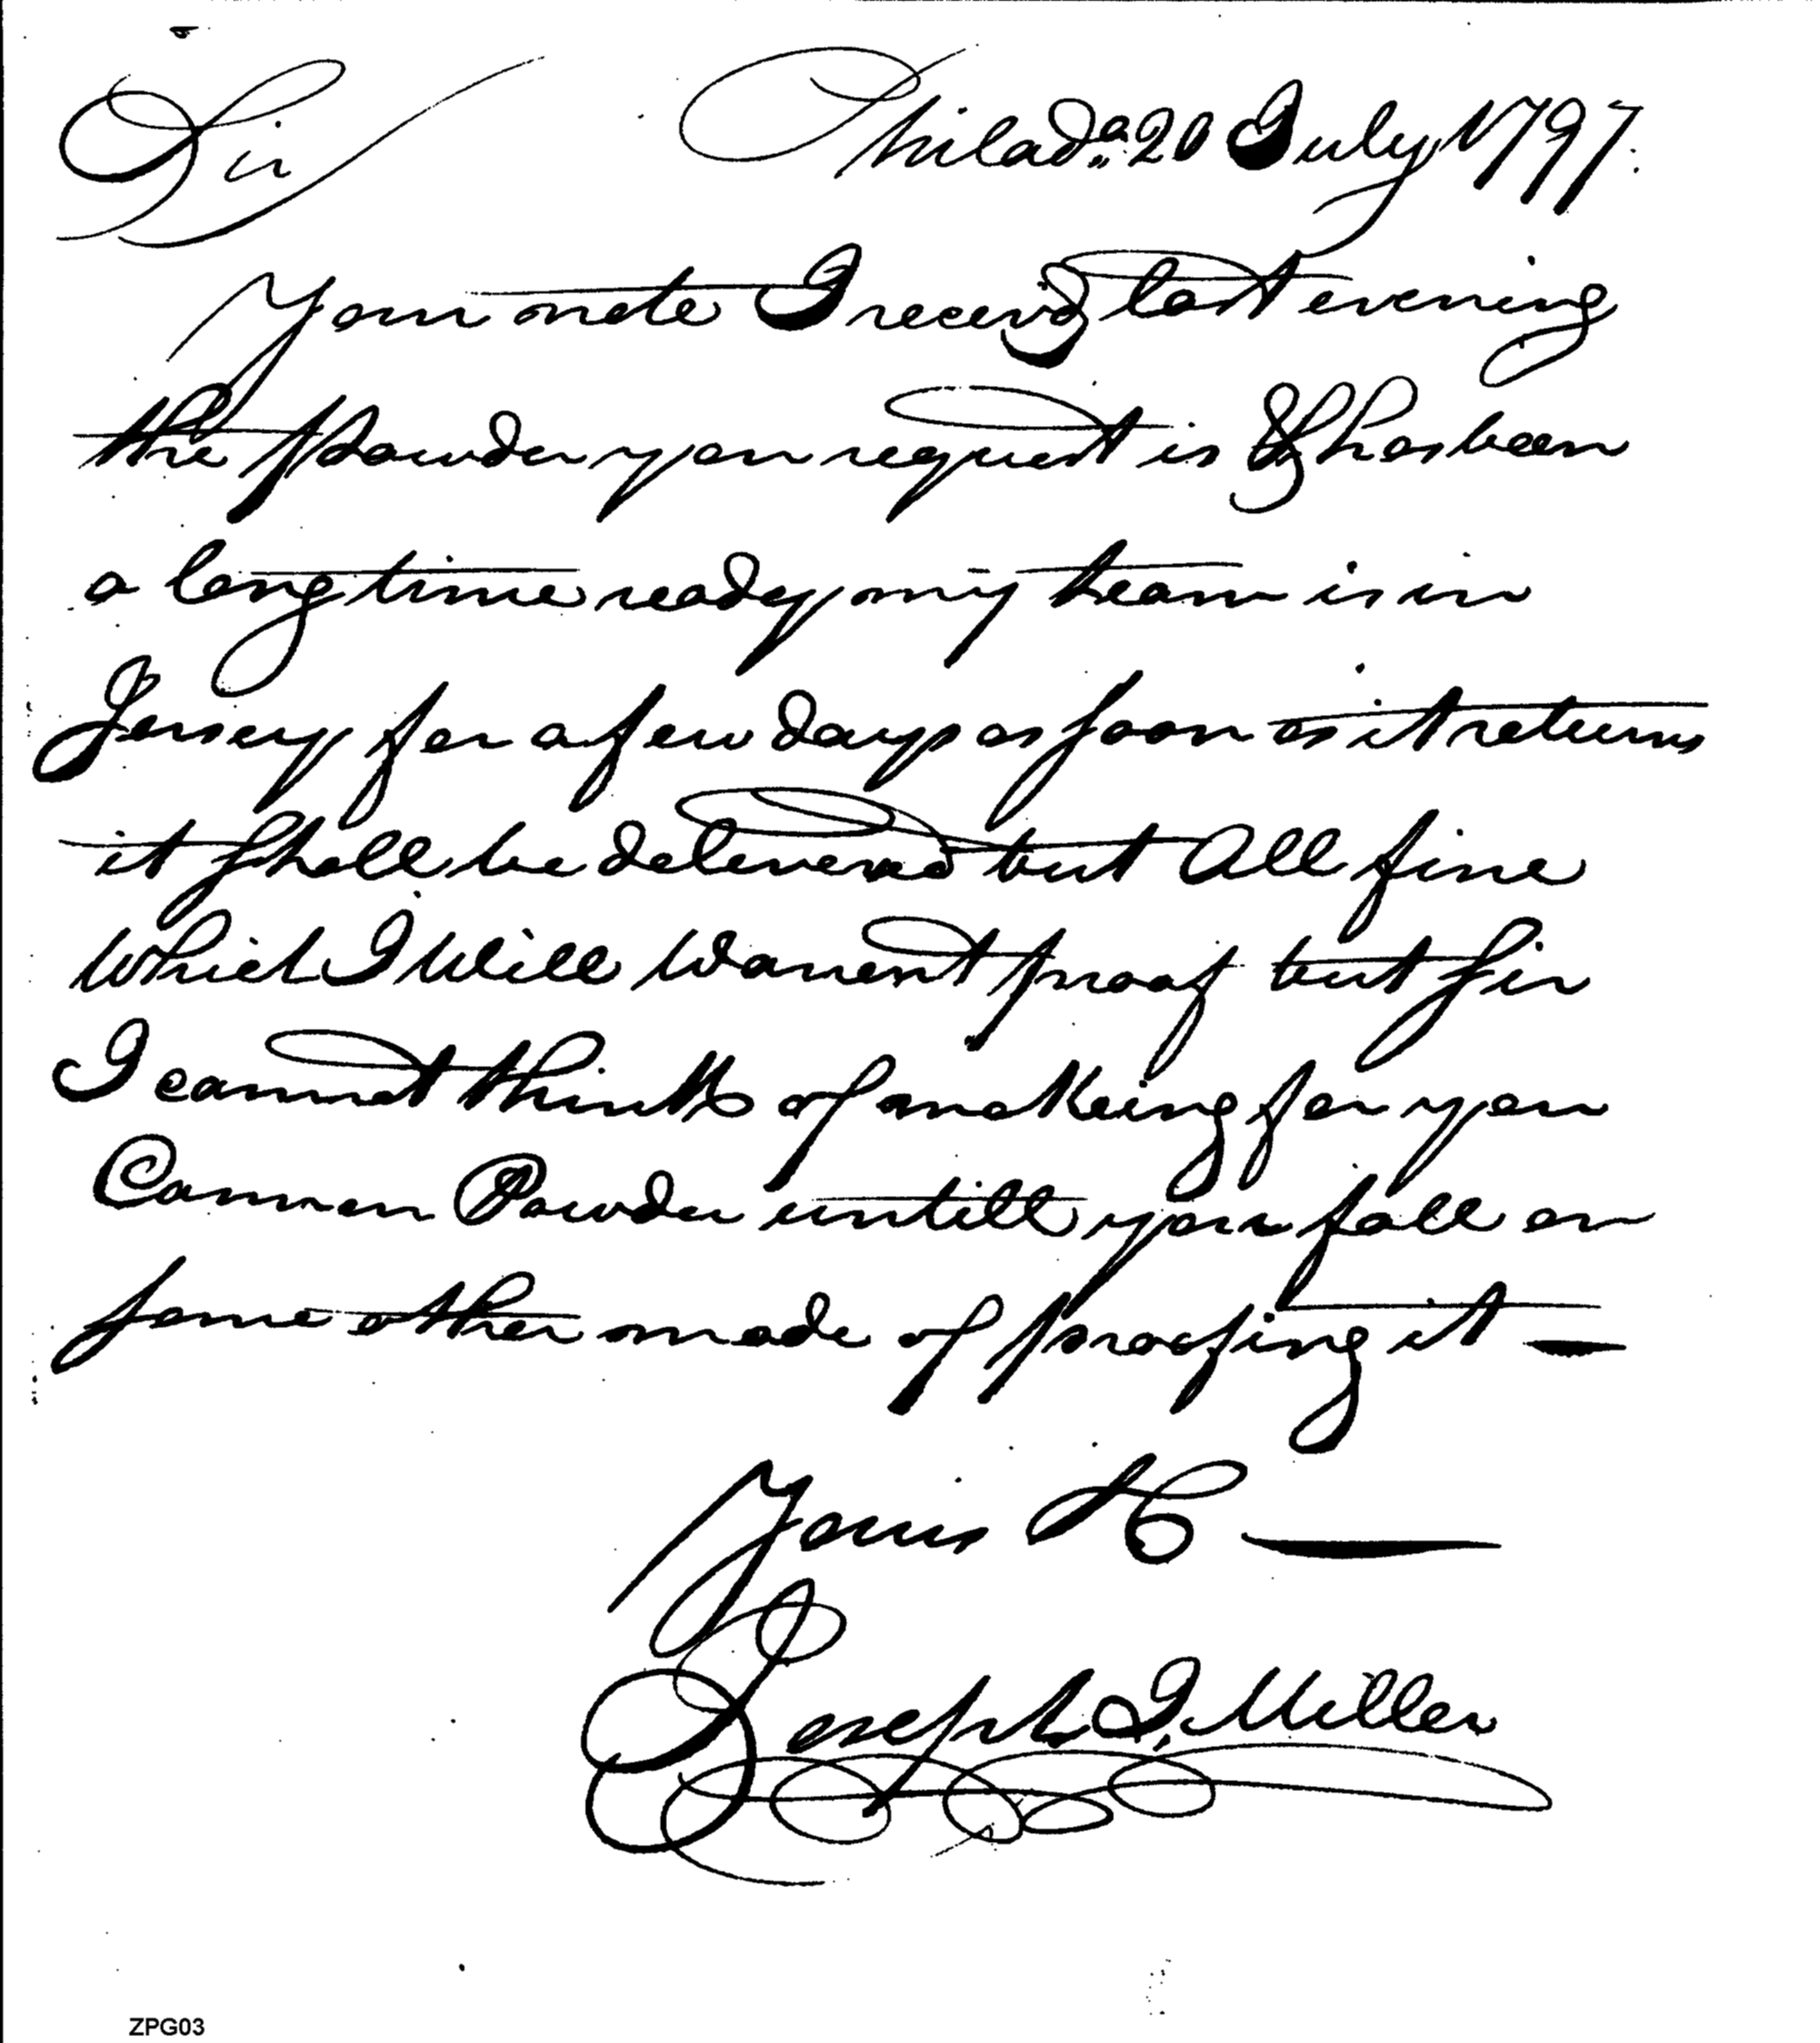 Sir Philada. 20 July 1797.
Your note I receivd last evening
the Powder you request is & has been
a long time ready my team is in
Jersey for a few days as soon as it returns
it shall be delevered but All fine
Which I Will Warrent proof but sir
I cannot think of makeing for you
Cannon Powder untill you fall on
some other mode of proofing it —
Yours &C —
Joseph J. Miller
ZPG03